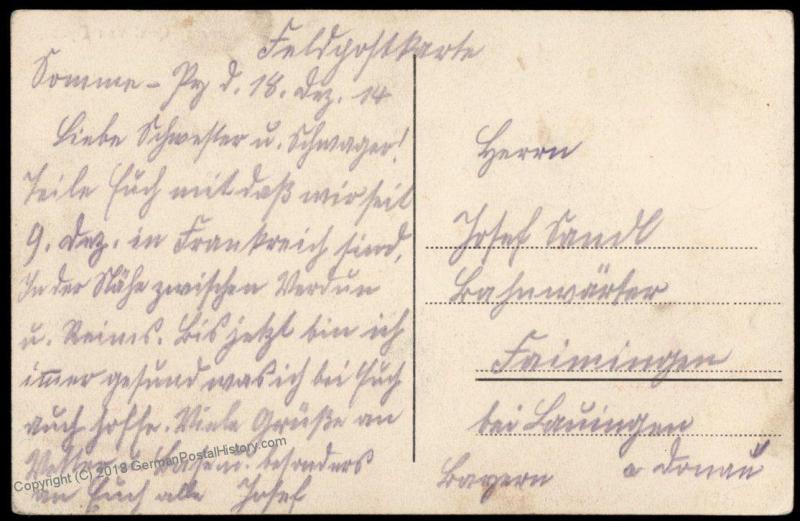 Feldpostkarte
Somme-Py d. 18. Dez. 14
Liebe Schwester u. Schwager!
Teile Euch mit daß wir seit
9. Dez. in Frankreich sind,
In der Nähe zwischen Verdun
u. Reims. Bis jetzt bin ich
immer gesund was ich bei Euch
auch hoffe. Viele Grüße an
Vetter Base u. besonders
an Euch alle Josef
Herrn
Josef Sandl
Bahnwärter
Faimingen
bei Lauingen
a Donau
Bayern
Copyright (C) 2018 GermanPostalHistory.com